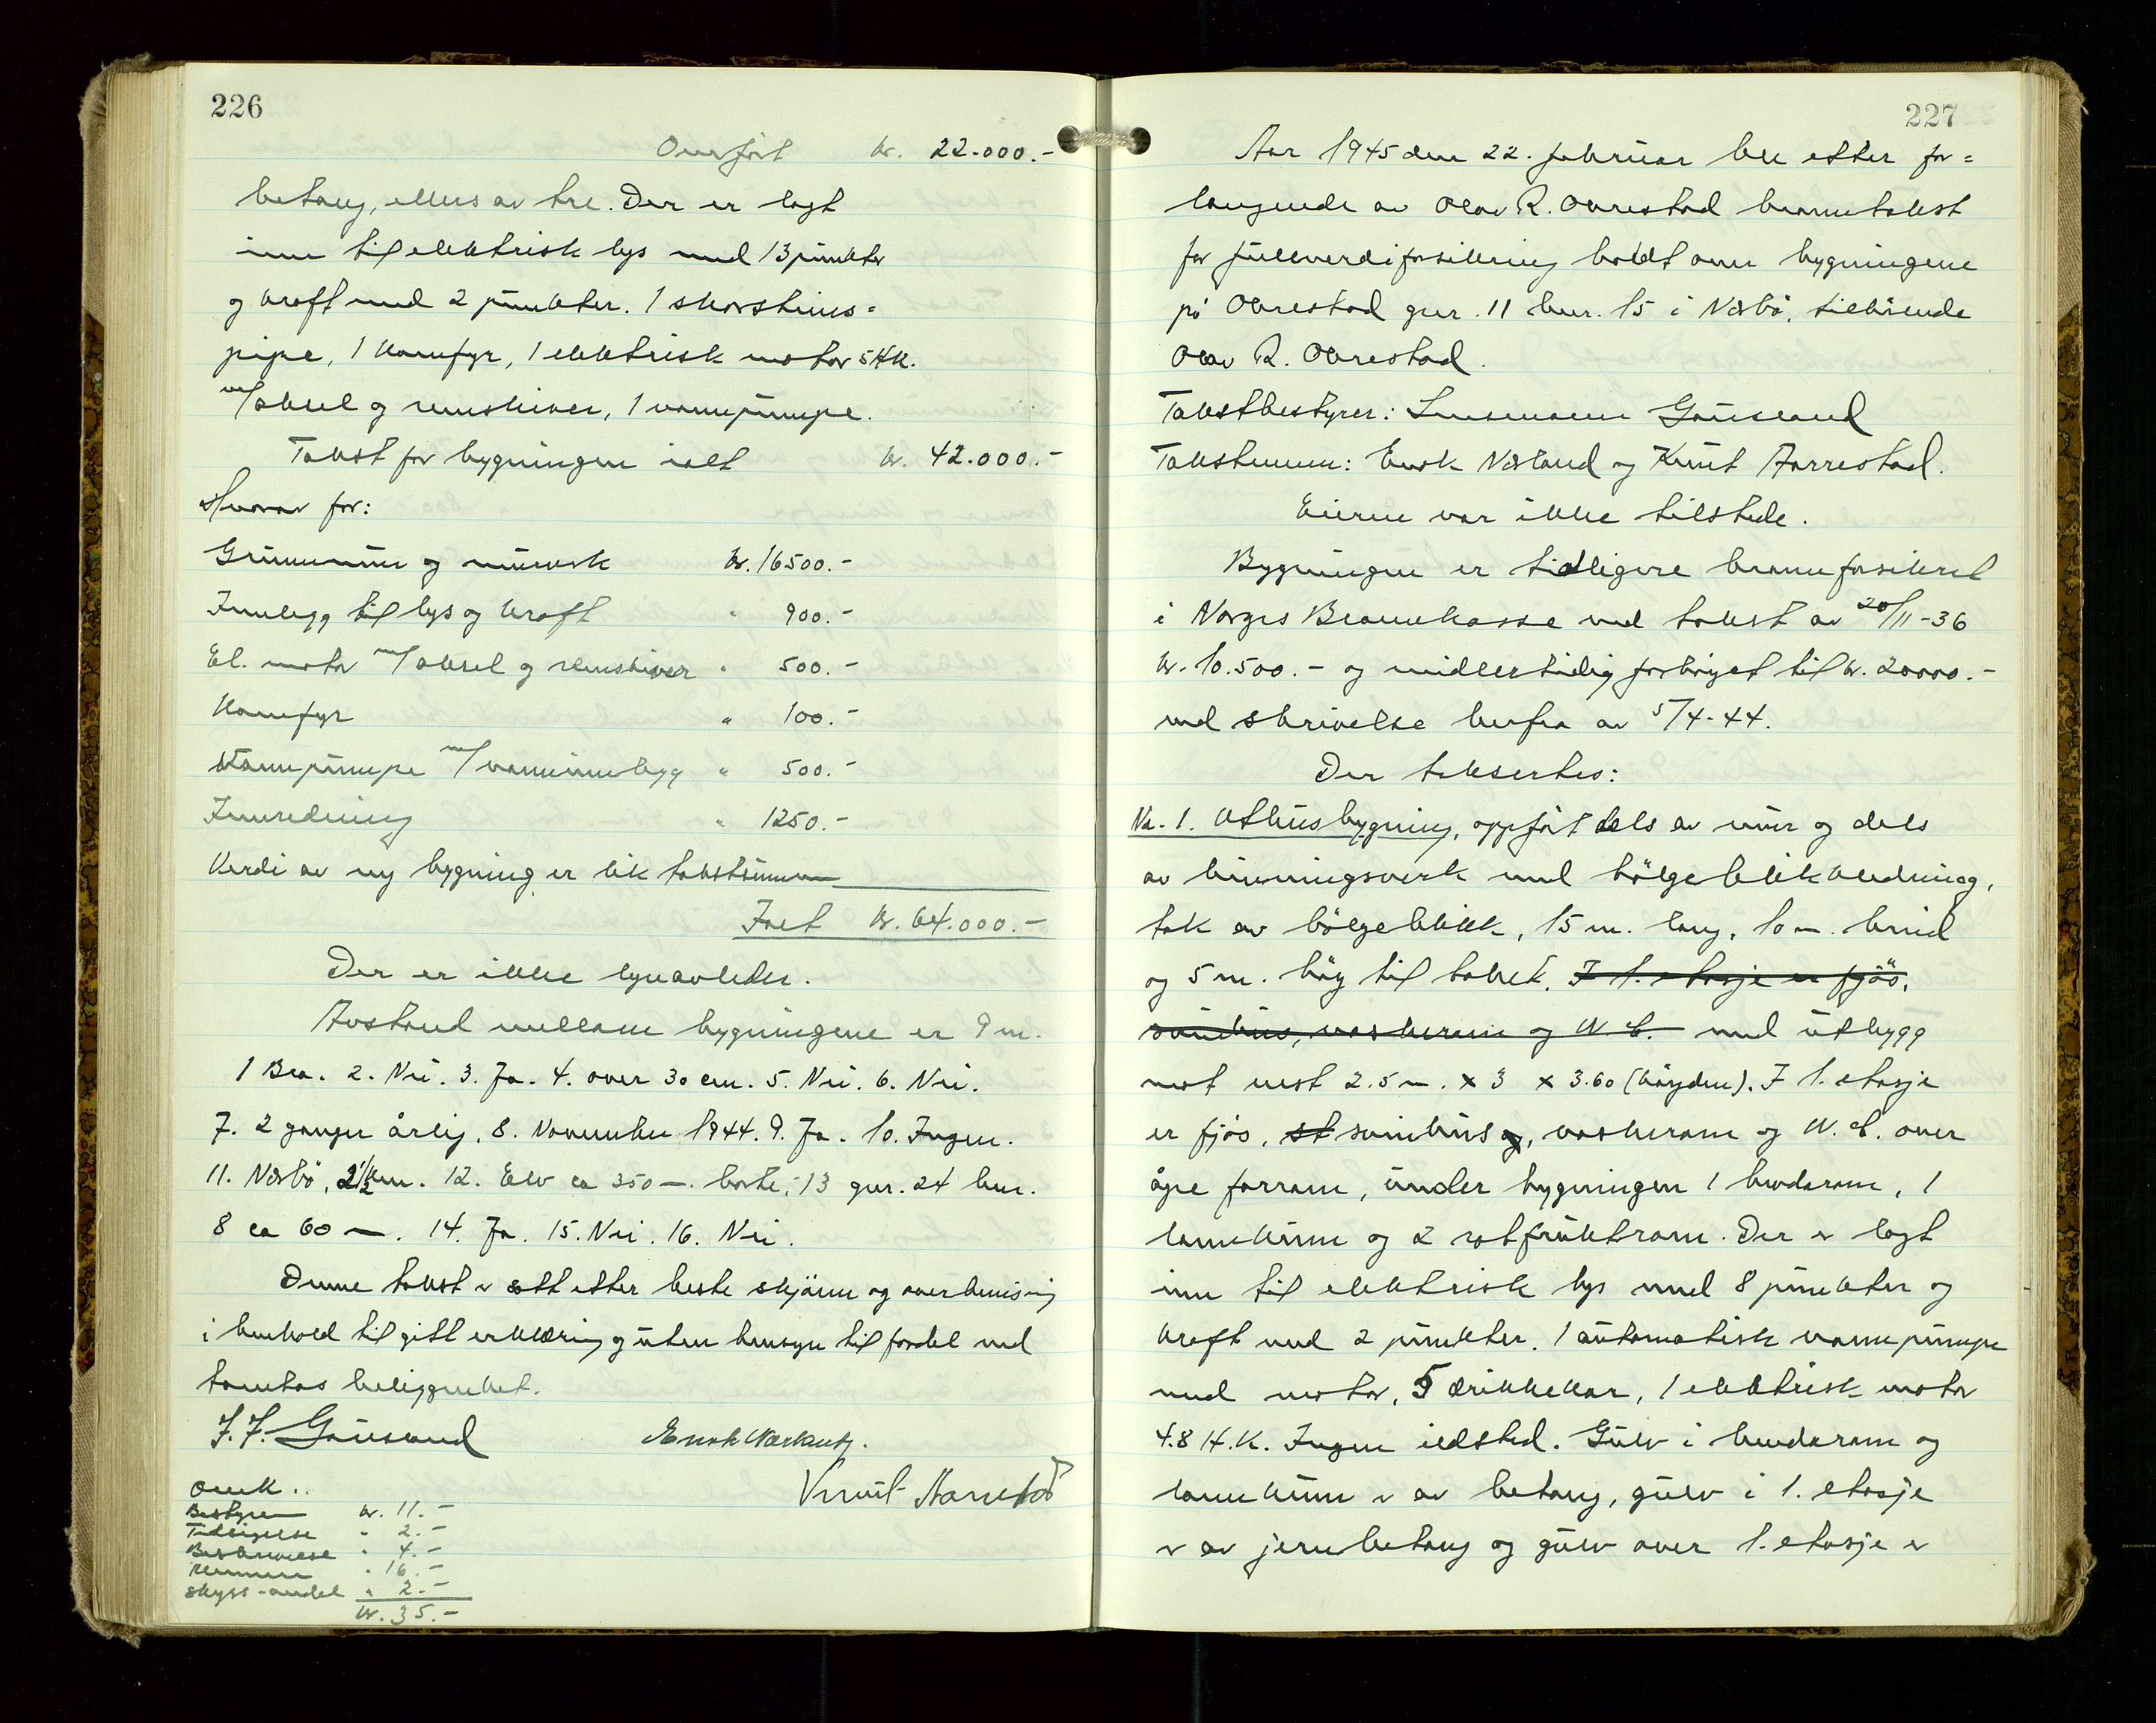 226
Overført kr. 22.000.-
betong, ellers av tre. Der er lagt
inn til elektrisk lys med 13 punkter
og kraft med 2 punkter. 1 skorsteins=
pipe, 1 kamfyr, 1 elektrisk motor 5 HK.
m/aksel og remskiver, 1 vannpumpe.
Takst for bygningen ialt kr. 42.000.-
Hvorav for:
Grunnmur og murverk kr. 16500.-
Innlegg til lys og kraft " 900.-
El. motor m/aksel og remskiver " 500.-
Kamfyr " 100.-
Vannpumpe m/vanninnlegg " 500.-
Innredning " 1250.-
Verdi av ny bygning er lik takstsummen
Ialt kr. 64.000.-
Der er ikke lynavleder.
Avstand mellom bygningene er 9 m.
1 Bra. 2. Nei. 3. Ja. 4. over 30 cm. 5. Nei. 6. Nei.
7. 2 ganger årlig. 8. November 1944. 9. Ja. 10. Ingen.
11. Nærbö, 2 1/2 km. 12. Elv ca 350 m. borte, 13 gnr. 24 bnr.
8 ca 60 m. 14. Ja. 15. Nei. 16. Nei.
Denne takst er satt etter beste skjönn og overbevisning
i henhold til gitt erklæring og uten hensyn til fordel ved
tomtas beliggenhet.
J. F. Gausland Enok Nærland.
Knut Aarrestad
Omk..
Bestyrer kr. 11.-
Tidsigelse " 2.-
Beskrivelse " 4.-
Mennene " 16.-
Skyss-andel " 2.-
kr. 35.-
227
Aar 1945 den 22. februar ble etter for=
langende av Olav R. Obrestad branntakst
for fullverdiforsikring holdt over bygningene
på Obrestad gnr. 11 bnr. 15 i Nærbö, tilhörende
Olav R. Obrestad.
Takstbestyrer: Lensmann Gausland
Takstmenn: Enok Nærland og Knut Aarrestad.
Eieren var ikke tilstede.
Bygningen er tidligere brannforsikret
i Norges Brannkasse ved takst av 20/11-36
kr. 10.500.- og midlertidig forhöyet til kr. 20000.-
ved skrivelse herfra av 5/4-44.
Der taksertes:
No. 1. Uthusbygning, oppfört dels av mur og dels
av binningsverk med bölgeblikkledning,
tak av bölgeblikk, 15 m. lang, 10 m. breid
og 5 m. höy til taket. I 1. etasje er fjös,
svinehus, vaskerom og W.C. med utbygg
mot vest 2.5 m. x 3 x 3.60 (höyden). I 1. etasje
er fjös, st svinhus og, vaskerom og W.C. over
åpe forrom, under bygningen 1 brodarom, 1
landkum og 2 rotfruktrom. Der er lagt
inn til elektrisk lys med 8 punkter og
kraft med 2 punkter. 1 automatisk vannpumpe
med motor, 5 drikkekar, 1 elektrisk motor
4.8 H.K. Ingen ildsted. Gulv i brodarom og
landkum er av betong, gulv i 1. etasje
er av jernbetong og gulv over 1. etasje er